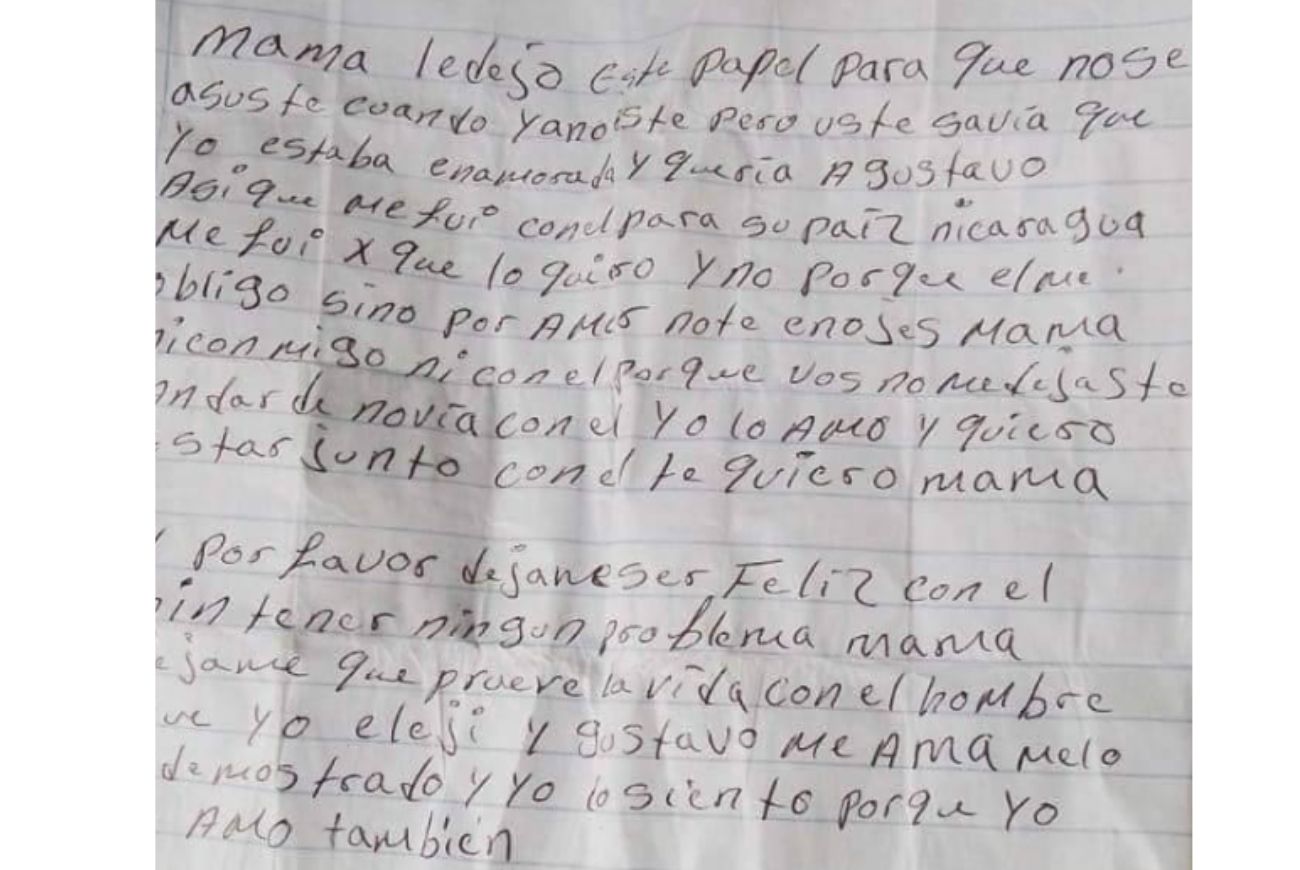 Mama ledejo Este papel para que nose
asuste cuando yanoiste pero uste savia que
Yo estaba enamorada y queria A gustavo
Asi que me fui conel para su paiz nicaragua
Me fui x que lo quiro y no porque el me
obligo sino por AMor note enojes Mama
niconmigo ni con el porque vos no me dejaste
andar de novia con el yo lo AMo y quiero
estar junto con el te quiero mama
Por favor dejame ser Feliz con el
sin tener ningun problema mama
ejame que prueve la vida con el hombre
ue yo eleji y gustavo me AMA melo
demostrado y yo lo siento porque yo
AMo también